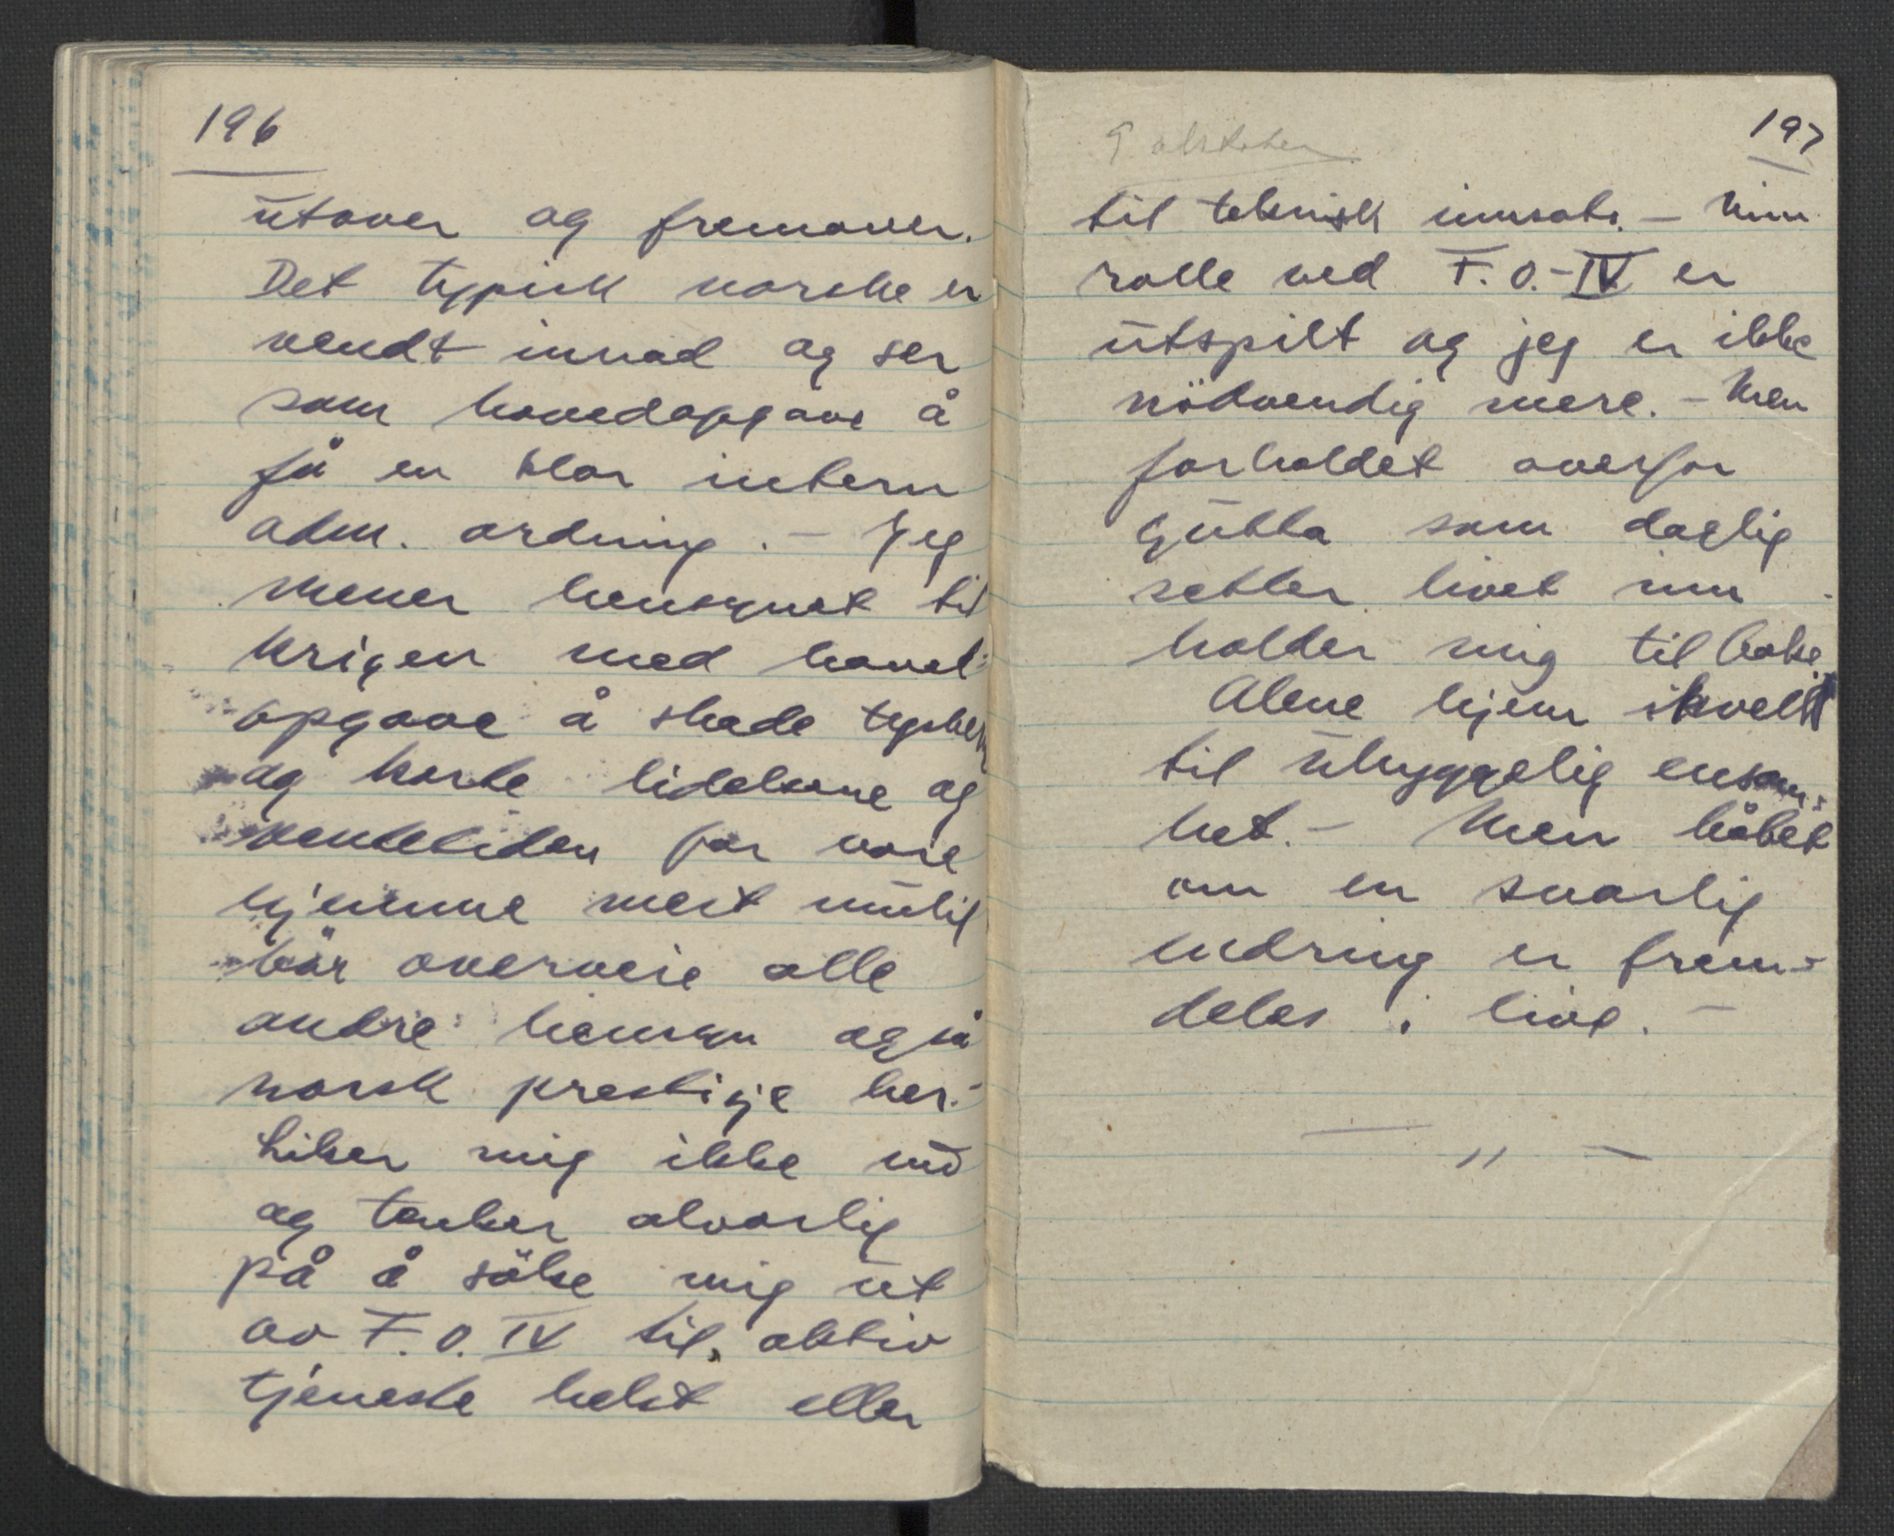 196
utover og fremover.
Det typisk norske er
vendt innad og ser
som hovedopgave å
få en klar intern
adm. ordning. - Jeg
mener hensynet til
krigen med hoved-
opgave å skade tyskern
og korte lidelsene og
ventetiden for våre
hjemme mest mulig
bör overveie alle
andre hensyn også
norsk prestisje her.-
Liker mig ikke nu
og tenker alvorlig
på å söke mig ut
av F.O. IV til aktiv
tjeneste helst eller
9 oktober
197
til teknisk innsats. - Min
rolle ved F.O.-IV er
utspilt og jeg er ikke
nödvendig mere. - Men
forholdet overfor
gutta som daglig
setter livet inn
holder mig tilbake
Alene hjem ikveld
til uhyggelig ensom-
het. - Men håbet
om en snarlig
endring er frem-
deles i live. -
— " —